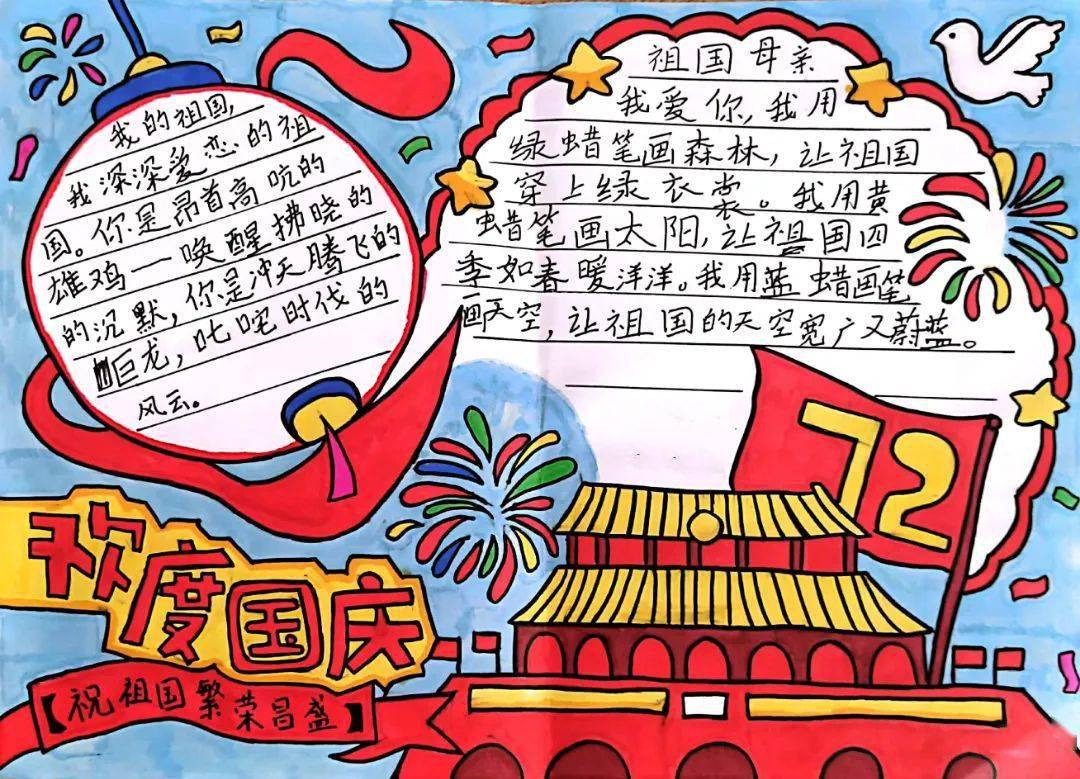 我的祖国,
我深深爱恋的祖
国。你是昂首高吭的
雄鸡一唤醒拂晓的
的沉默,你是冲天腾飞的
巨龙,叱咤时代的
风云。
祖国母亲
我爱你,我用
绿蜡笔画森林,让祖国
穿上绿衣裳。我用黄
蜡笔画太阳,让祖国四
季如春暖洋洋。我用蓝蜡画笔
画天空,让祖国的天空宽广又蔚蓝。
72
欢度国庆
【祝祖国繁荣昌盛】